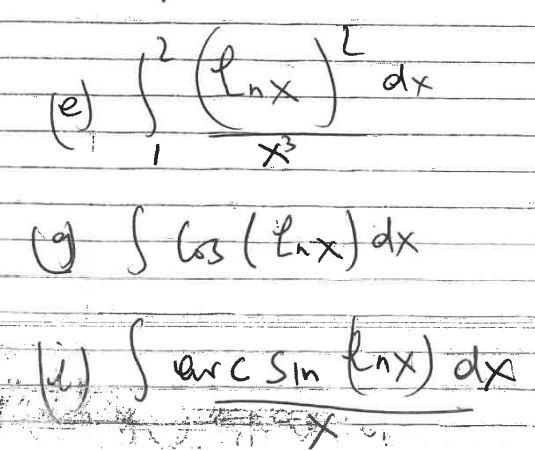 (e) ∫₁² (ln x)² / x³ dx
(g) ∫ cos(ln x) dx
(i) ∫ arc sin (ln x) / x dx